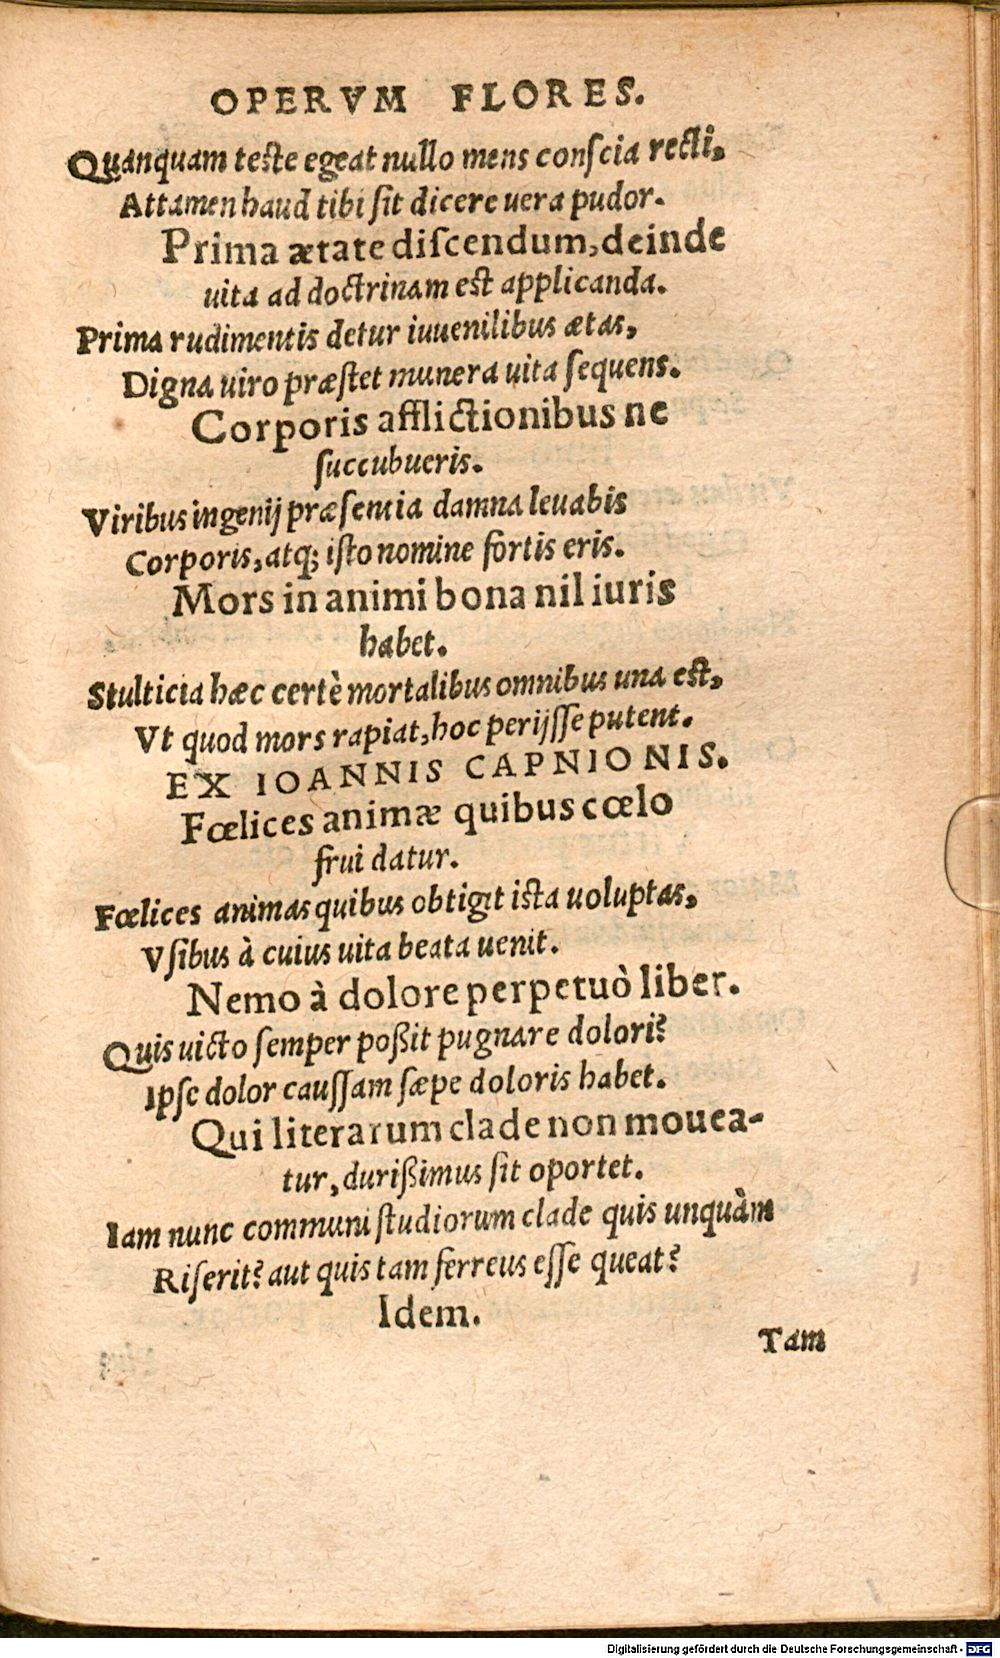 OPERVM FLORES.
Quanquam teste egeat nullo mens conſcia recti,
Attamen haud tibi ſit dicere uera pudor.
Prima ætate diſcendum, deinde
uita ad doctrinam est applicanda.
Prima rudimentis detur iuuenilibus ætas,
Digna uiro præſtet munera uita ſequens.
Corporis afflictionibus ne
ſuccubueris.
Viribus ingenij præſentia damna leuabis
Corporis, atq; iſto nomine fortis eris.
Mors in animi bona nil iuris
habet.
Stulticia hæc certè mortalibus omnibus una est,
Vt quod mors rapiat, hoc perijſſe putent.
EX IOANNIS CAPNIONIS.
Fœlices animæ quibus cœlo
frui datur.
Fœlices animas quibus obtigit ista uoluptas,
Vſibus à cuius uita beata uenit.
Nemo à dolore perpetuò liber.
Quis uicto ſemper poßit pugnare dolori?
Ipſe dolor cauſſam ſæpe doloris habet.
Qui literarum clade non mouea-
tur, durißimus ſit oportet.
Iam nunc communi ſtudiorum clade quis unquàm
Riſerit? aut quis tam ferreus eſſe queat?
Idem.
Tam
Digitalisierung gefördert durch die Deutsche Forschungsgemeinschaft - DFG